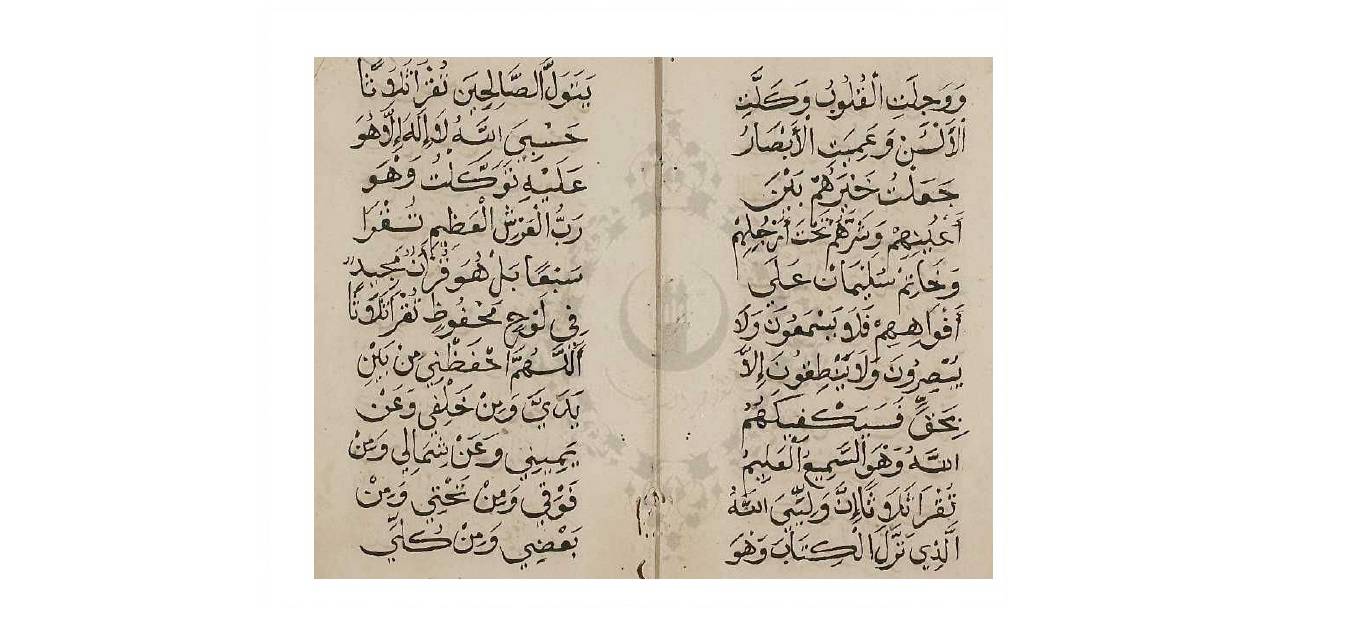 وَوَجِلَتِ الْقُلُوبُ وَكَلَّتِ
الْأَلْسُنُ وَعَمِيَتِ الْأَبْصَارُ
جَعَلْتُ خَيْرَهُمْ بَيْنَ
أَعْيُنِهِمْ وَشَرَّهُمْ تَحْتَ أَرْجُلِهِمْ
وَخَاتِمُ سُلَيْمَانَ عَلَى
أَفْوَاهِهِمْ فَلَا يَسْمَعُونَ وَلَا
يُبْصِرُونَ وَلَا يَنْطِقُونَ إِلَّا
بِحَقِّ فَسَيَكْفِيكَهُمُ
اللَّهُ وَهُوَ السَّمِيعُ الْعَلِيمُ
تُقْرَا ثَلَاثًا إِنَّ وَلِيِّيَ اللَّهُ
الَّذِي نَزَّلَ الْكِتَابَ وَهُوَ
يَتَوَلَّى الصَّالِحِينَ تُقْرَا ثَلَاثًا
حَسْبِيَ اللَّهُ لَا إِلَهَ إِلَّا هُوَ
عَلَيْهِ تَوَكَّلْتُ وَهُوَ
رَبُّ الْعَرْشِ الْعَظِيمِ تُقْرَا
سَبْعًا بَلْ هُوَ قُرْآنٌ مَجِيدٌ
فِي لَوْحٍ مَحْفُوظٍ تُقْرَا ثَلَاثًا
اللَّهُمَّ احْفَظْنِي مِنْ بَيْنِ
يَدَيَّ وَمِنْ خَلْفِي وَعَنْ
يَمِينِي وَعَنْ شِمَالِي وَمِنْ
فَوْقِي وَمِنْ تَحْتِي وَمِنْ
بَعْضِي وَمِنْ كُلِّي